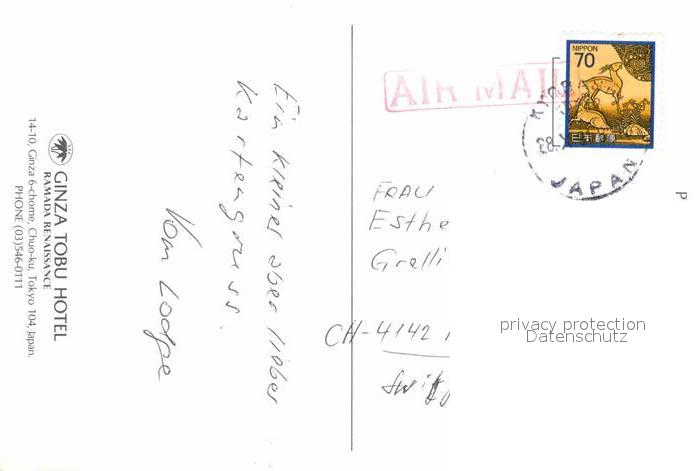 GINZA TOBU HOTEL
RAMADA RENAISSANCE
14-10, Ginza 6-chome, Chuo-ku, Tokyo 104, Japan.
PHONE (03)546-0111
Ein kleiner aber lieber
Kartengruss.
Vom Lodge
AIR MAIL
NIPPON
70
日本郵便
JAPAN
FRAU
Esthe
Gralli
CH-4142
privacy protection
Datenschutz
P